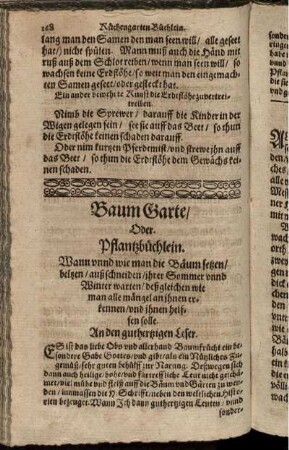 168 Küchengarten Büchlein.
lang man den Samen den man seen will / alle geseet
hat / nicht spüten. Wann muß auch die Händ mit
ruß auß dem Schlot reiben / wenn man seen will / so
wachsen keine Erdflöhe / so weit man den eingemach-
ten Samen geseet / oder gesteckt hat.
Ein ander bewehrte Kunst die Erdflöhe zu vertrei-
treiben.
Nimb die Sprewer / darauff die Kinder in der
Wigen gelegen sein / see sie auff das Beet / so thun
die Erdflöhe keinen schaden darauff.
Oder nim kurtzen Pferdemist / und strewe jhn auff
das Beet / so thun die Erdflöhe dem Gewächs kei-
nen schaden.
Baum Garte /
Oder
Pflantzbüchlein.
Wann vnnd wie man die Bäum setzen /
beltzen / außschneiden / jhrer Sommer vnnd
Winter warten / deßgleichen wie
man alle mängel an jhnen er-
kennen / vnd jhnen helf-
fen solle.
An den guthertzigen Leser.
Es ist das liebe Obs vnd allerhand Baumfrücht ein be-
sondere Gabe Gottes / vnd gibt / als ein Nützlichen Zu-
gemüß / sehr guten behülff zur Narung. Deßwegen sich
dann auch heilige / hohe / vnd fürtreffliche Leut nicht geschä-
met / vie / mühe vnd fleiß auff die Bäum vnd Gärten zu wen-
den / inmassen die H. Schrifft / neben den weltlichen Histo-
rien bezeuget. Wann Ich dann guthertzigen Leuten / vnnd
sonder-